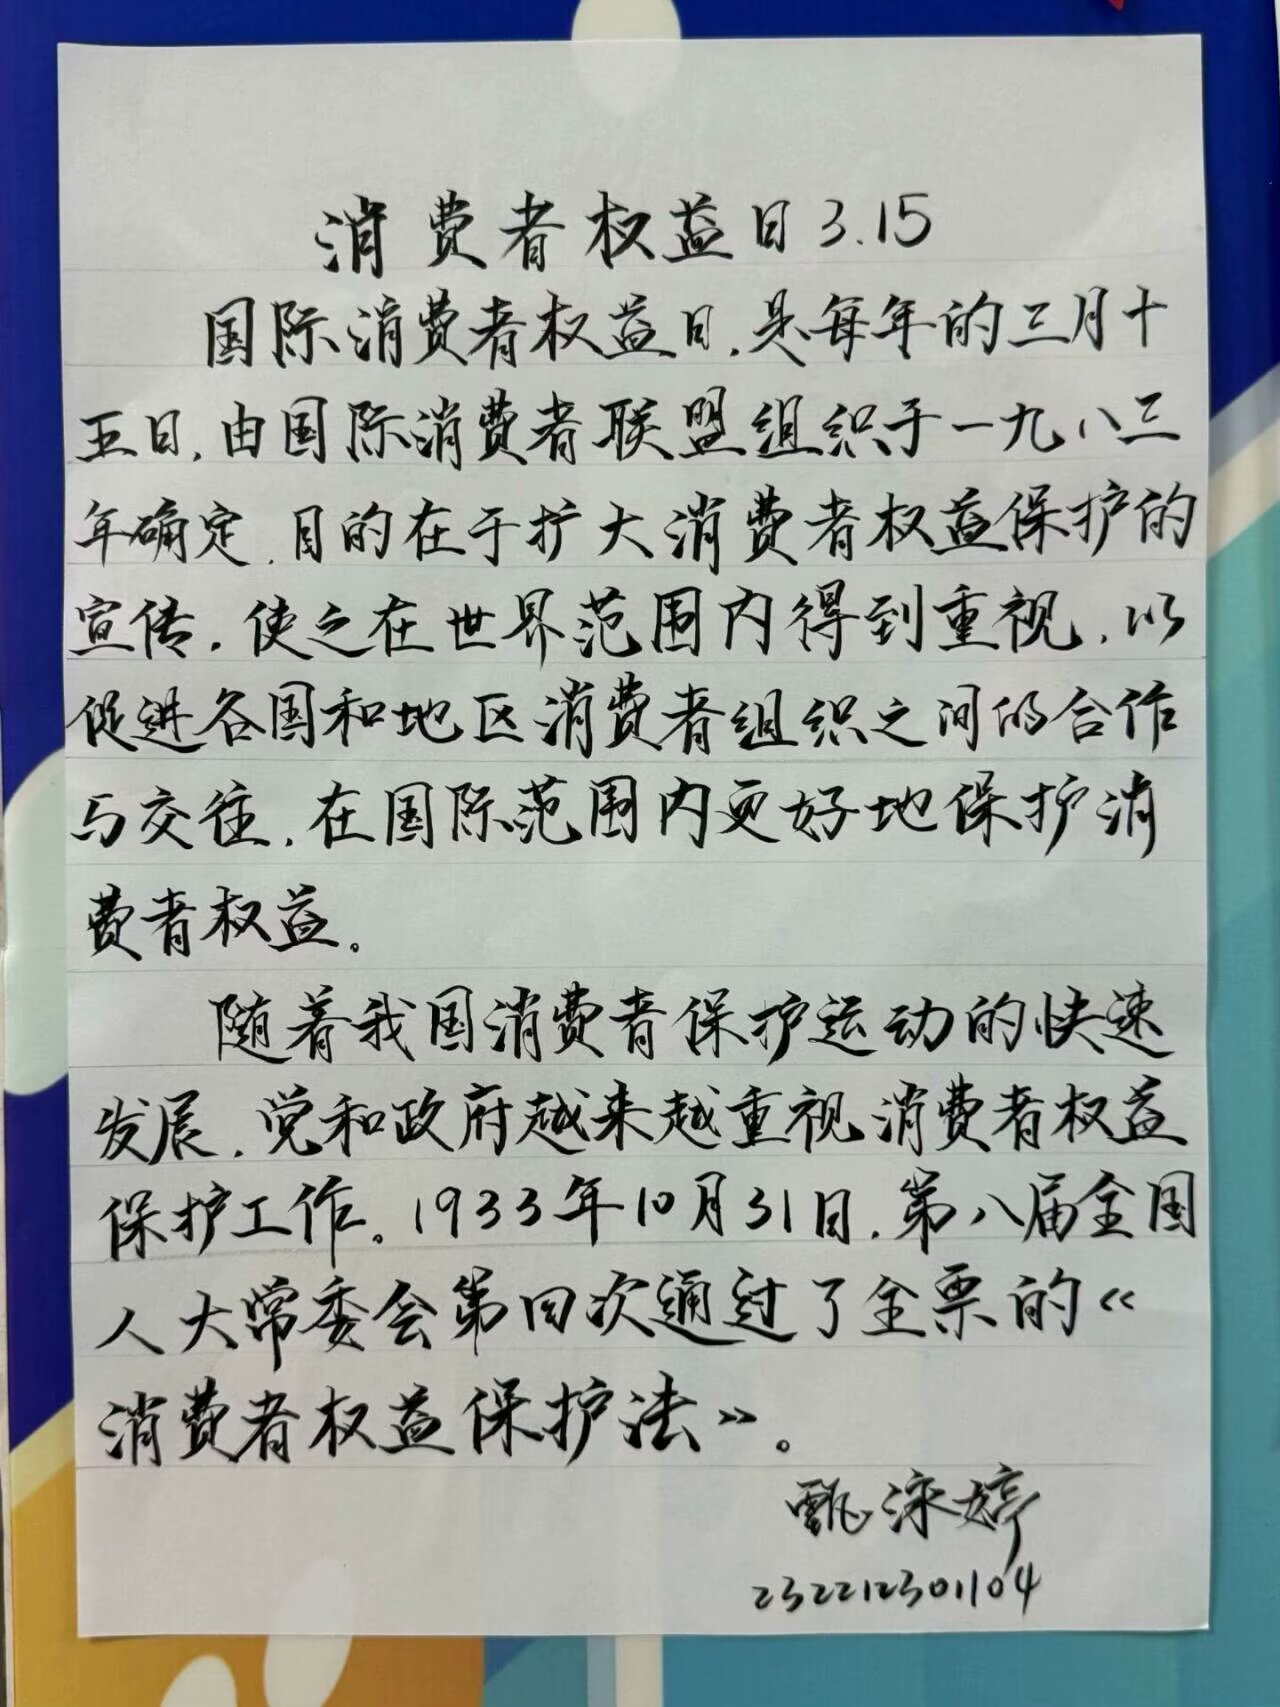 消费者权益日3.15
国际消费者权益日,是每年的三月十
五日,由国际消费者联盟组织于一九八三
年确定,目的在于扩大消费者权益保护的
宣传,使之在世界范围内得到重视,以
促进各国和地区消费者组织之间的合作
与交往,在国际范围内更好地保护消
费者权益。
随着我国消费者保护运动的快速
发展,党和政府越来越重视消费者权益
保护工作。1933年10月31日,第八届全国
人大常委会第四次通过了全票的《
消费者权益保护法》。
甄泳婷
232212301104